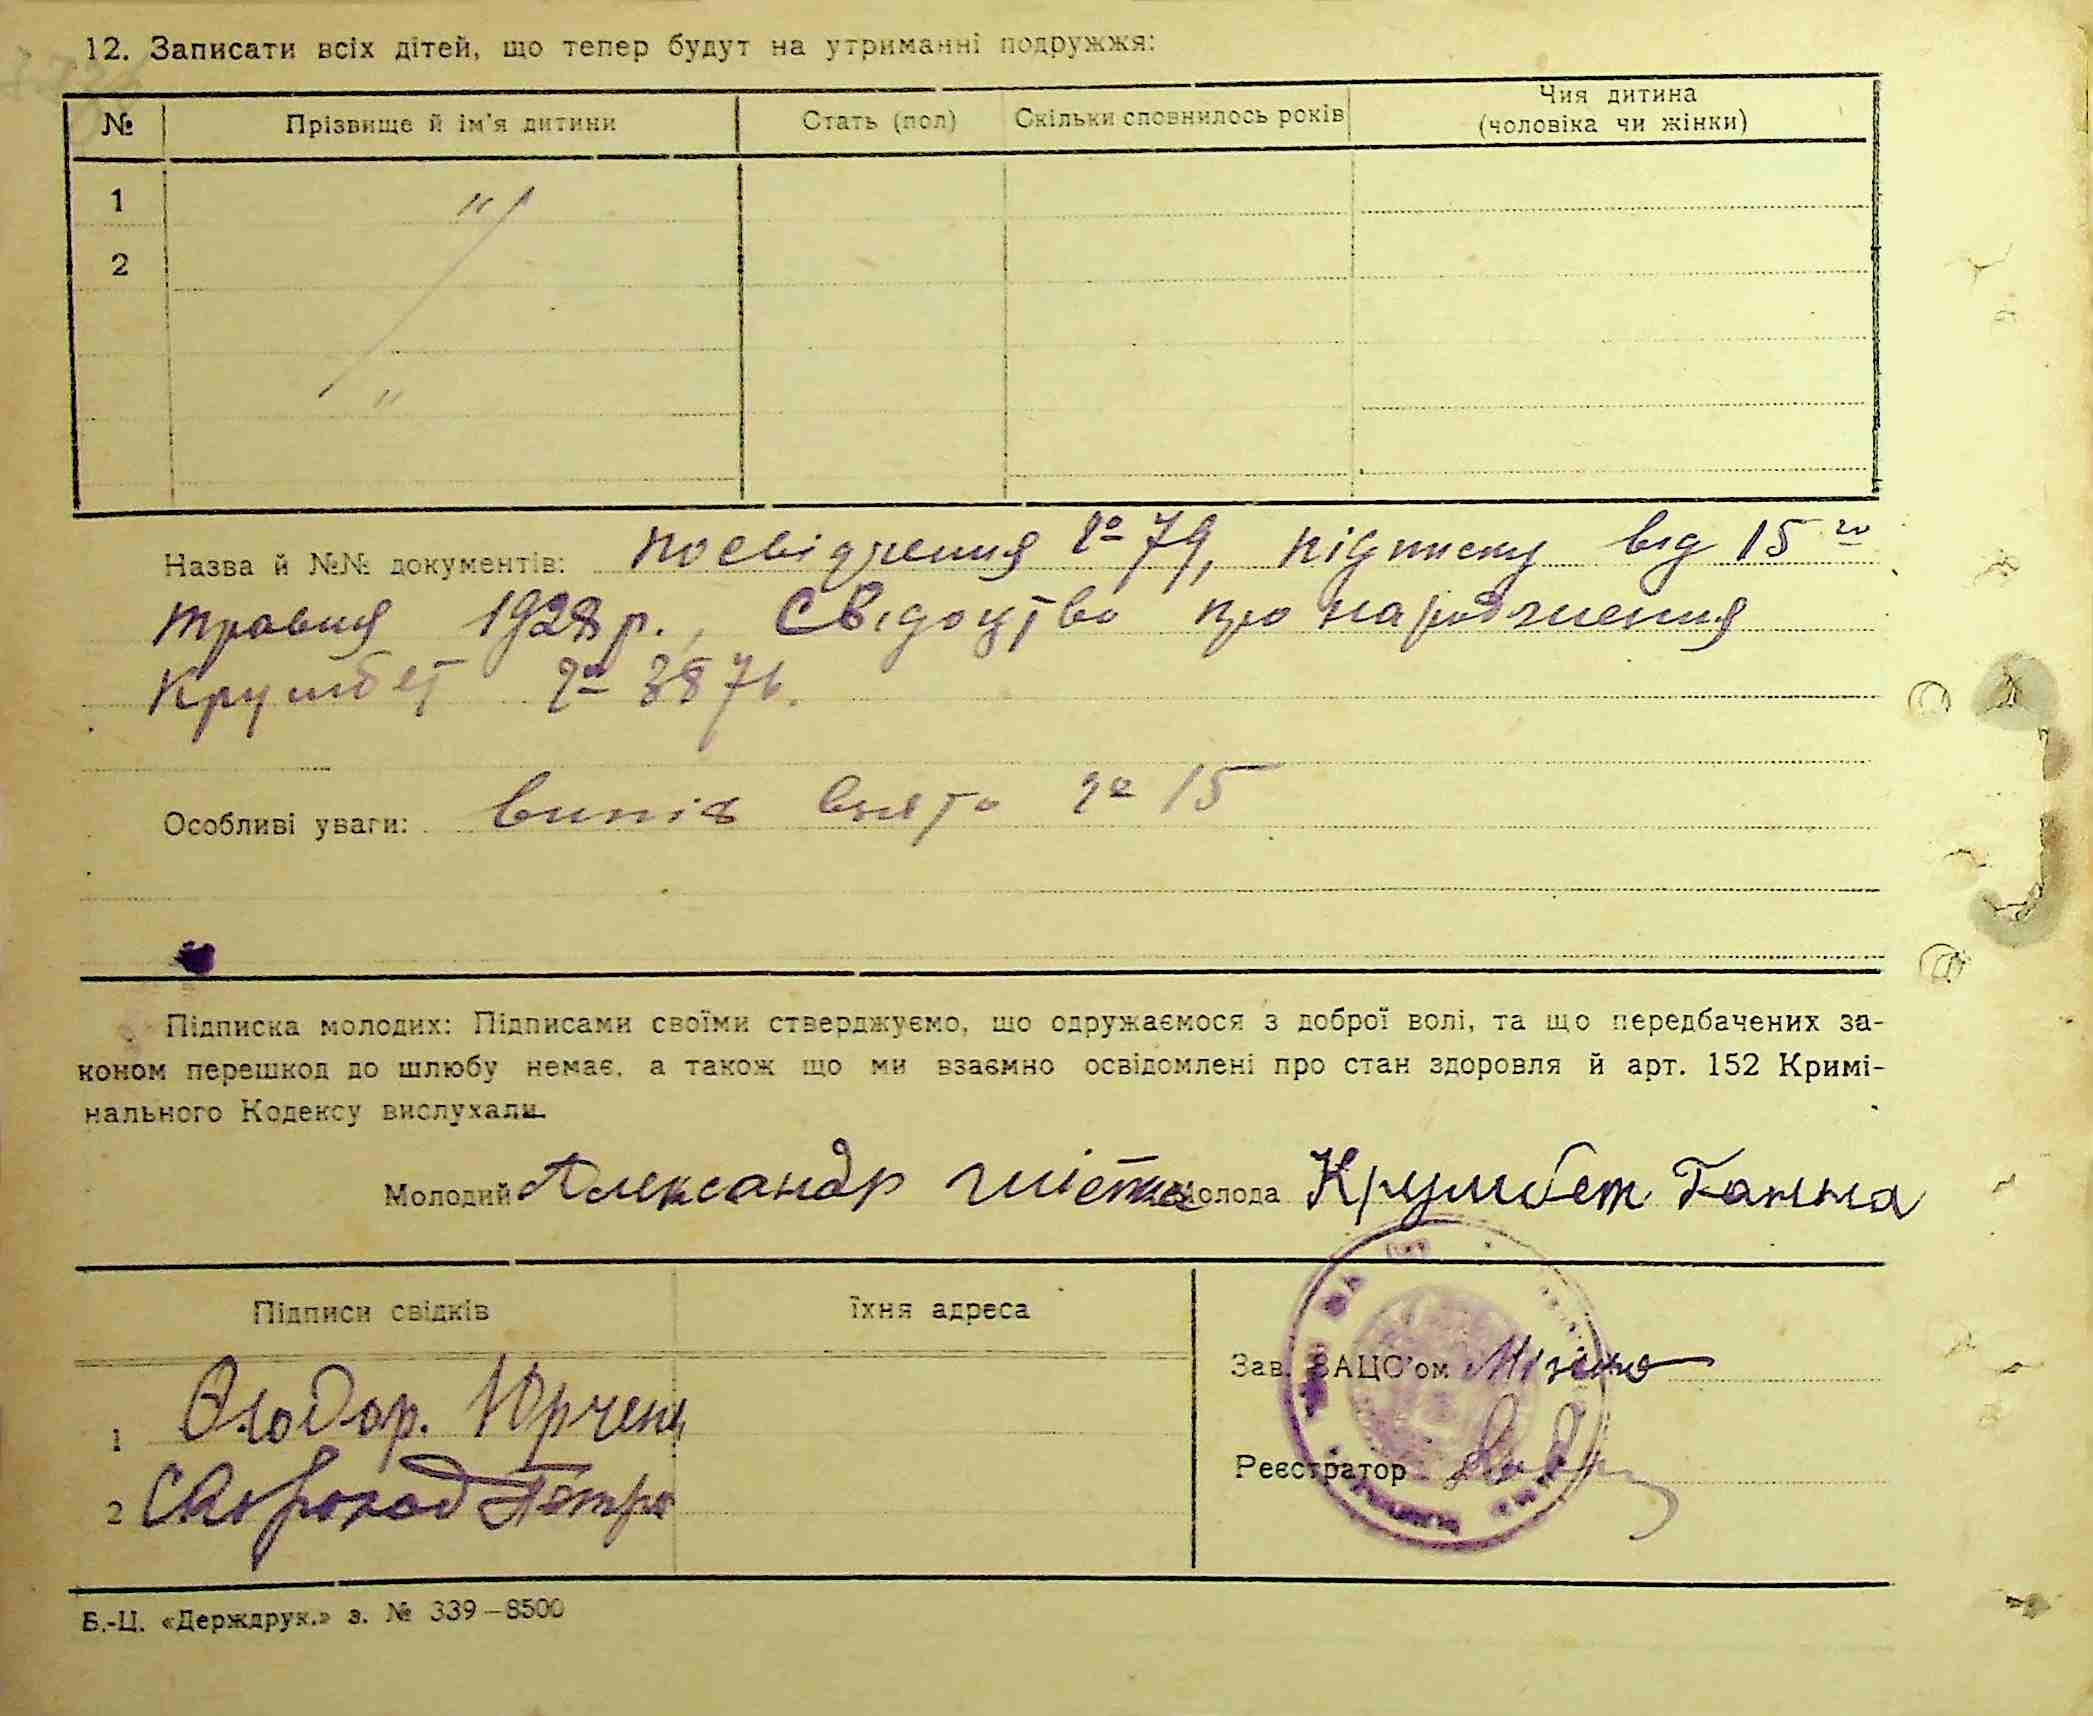 12. Записати всіх дітей, що тепер будут на утриманні подружжя:
№ Прізвище й ім'я дитини Стать (пол) Скільки сповнилось років Чия дитина (чоловіка чи жінки)
1 "
2
"
Назва й №№ документів: посвідчення № 79, підписку від 15го
травня 1928 р., Свідоцтво про народження
Крумбет № 3876.
Особливі уваги: взято № 15
Підписка молодих: Підписами своїми стверджуємо, що одружаємося з доброї волі, та що передбачених за-
коном перешкод до шлюбу немає, а також що ми взаємно освідомлені про стан здоровля й арт. 152 Кримі-
нального Кодексу вислухали.
Молодий Александр Молода Крумбет Ганна
Підписи свідків Їхня адреса
Зав. ЗАЦС'ом
1 Юрчен
Реєстратор
2 Петро
Б.-Ц. «Держдрук.» з. № 339–8500